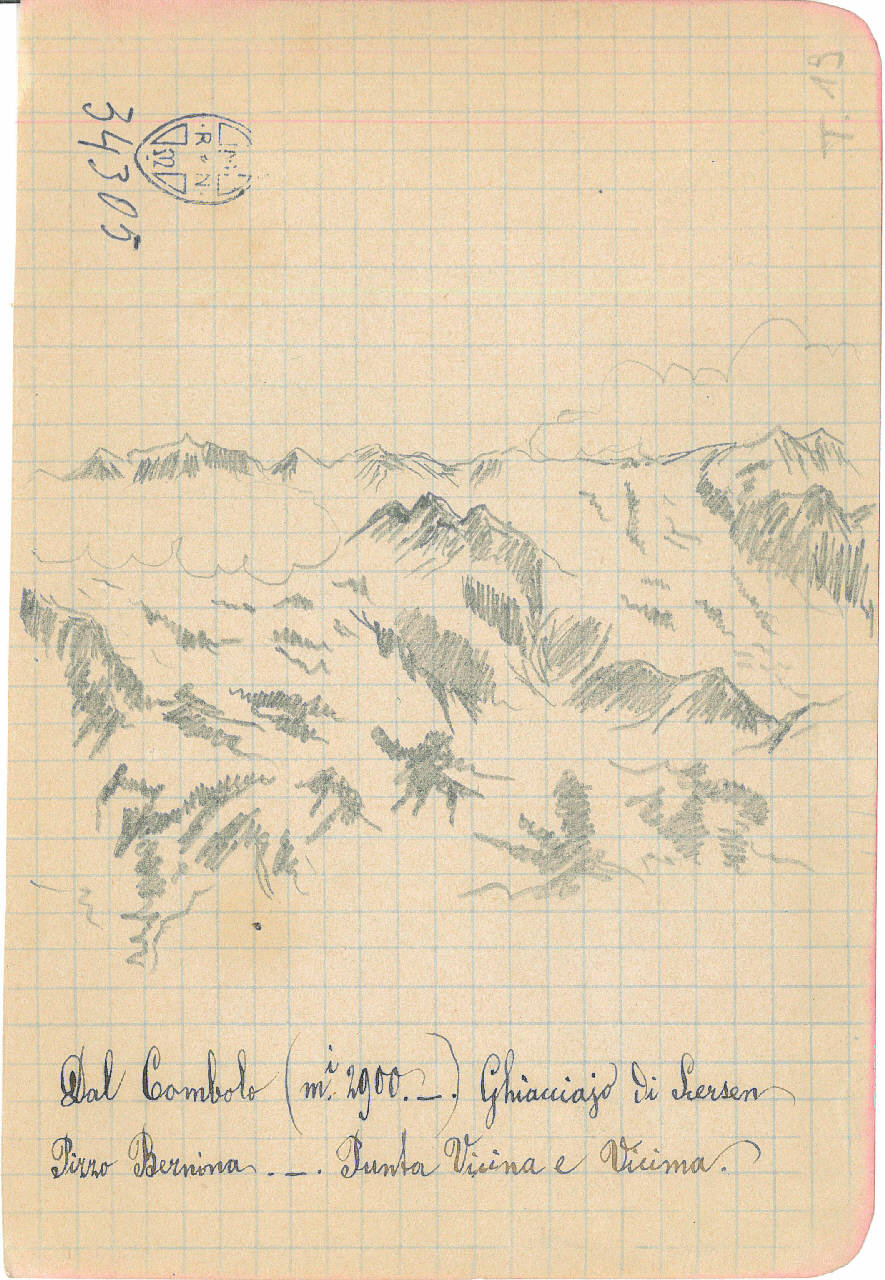 T. 19
34305
Dal Combolo (m.i 2900. _ .) Ghiacciajo di Scersen
Pizzo Bernina . _ . Punta Vicina e Vicima.